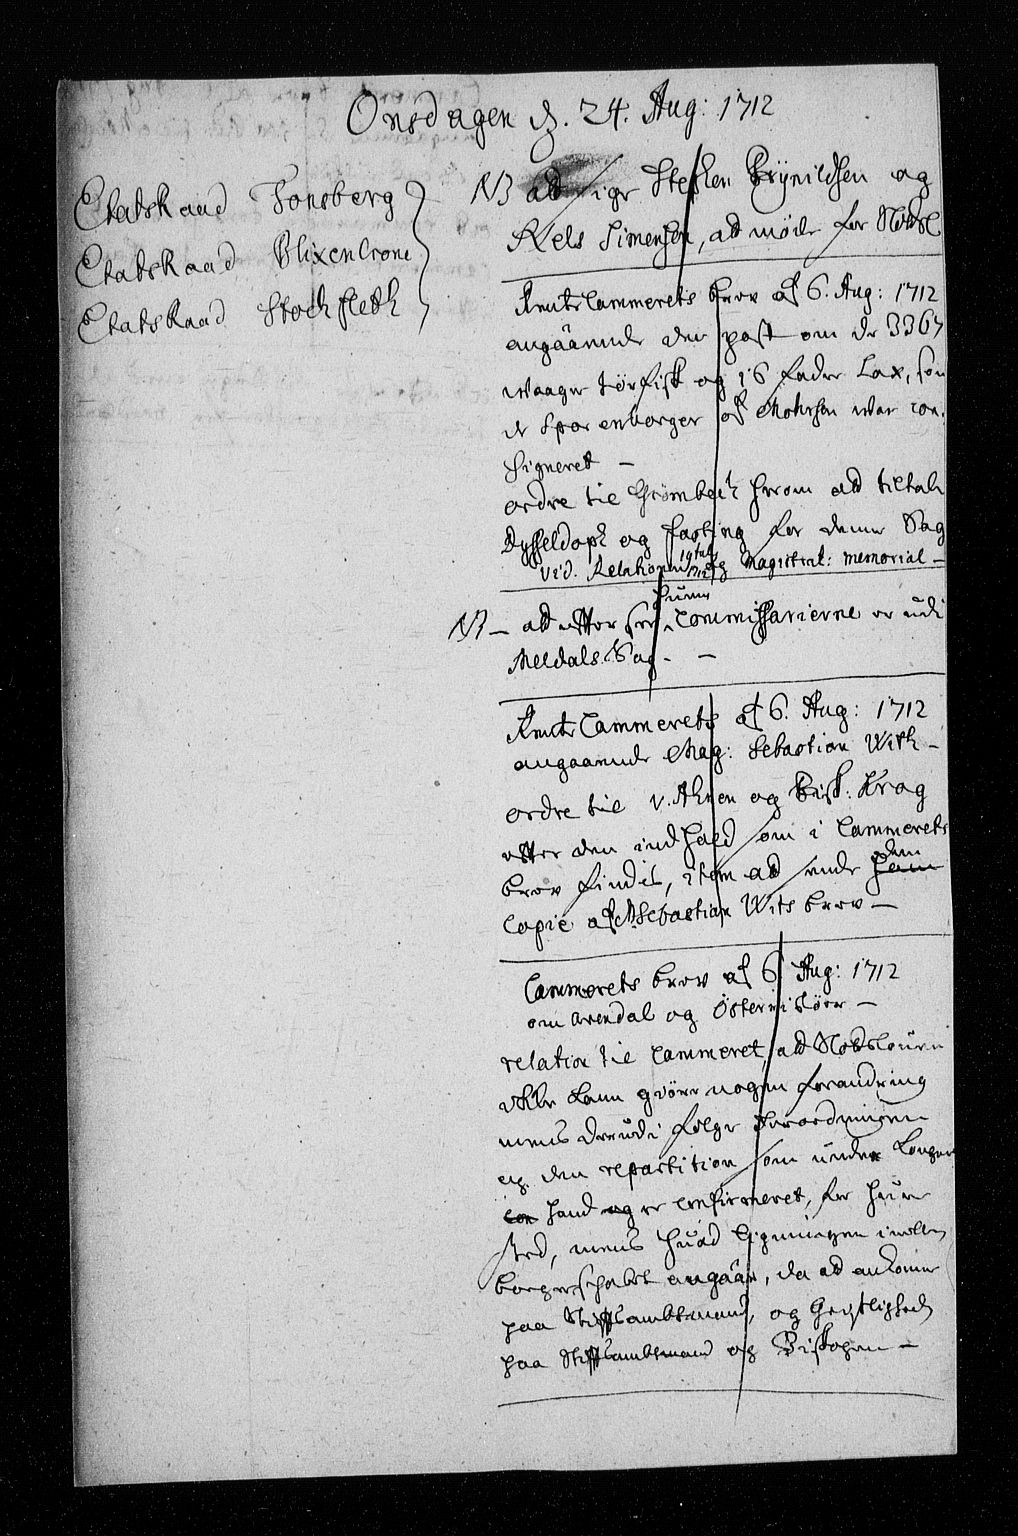 Onsdagen d. 24. Aug: 1712
Etatsraad Tonsberg
Etatsraad Blixencrone
Etatsraad Stockfleth
NB att sige Steffen Brÿnildsen og
Niels Simensen, att möde for Slotsl
RenteCammerets brev af 6. Aug: 1712
angaaende den post om de 3367
waager törfisk og 16 fader Lax, som
et Spor enborger af Mohrsen war con-
signeret -
ordre til Grömbech hvorom att tiltale
Dysseldoph og Fasting for denne Sag
vid. Relationen og Magistrat: memorial -
NB - att efter see, hvem Commissarierne er udi
Meldals Sag. -
RenteCammerets af 6. Aug: 1712
angaaende Mag: Sebastian With -
ordre til v. Ahnen og Bisk: Krag
efter den indhold som i Cammerets
brev findis, item att sende ham dem
Copie af M. Sebastian Wits brev -
Cammerets brev af 6 Aug: 1712
om Arendal og Österriisöer -
relation til Cammeret, att Slotsloven
ikke kand giöre nogen forandring
mens derudi fölge Forordningen
og den repartition som under Kongens
hand og er confirmeret, for hver
sted, mens hvad Ligningen imellem
borgerskabet angaar, da att ankomme
paa Stiftsambtmand, og Geistlighed
paa Stiftsambtmand og Biskopen -